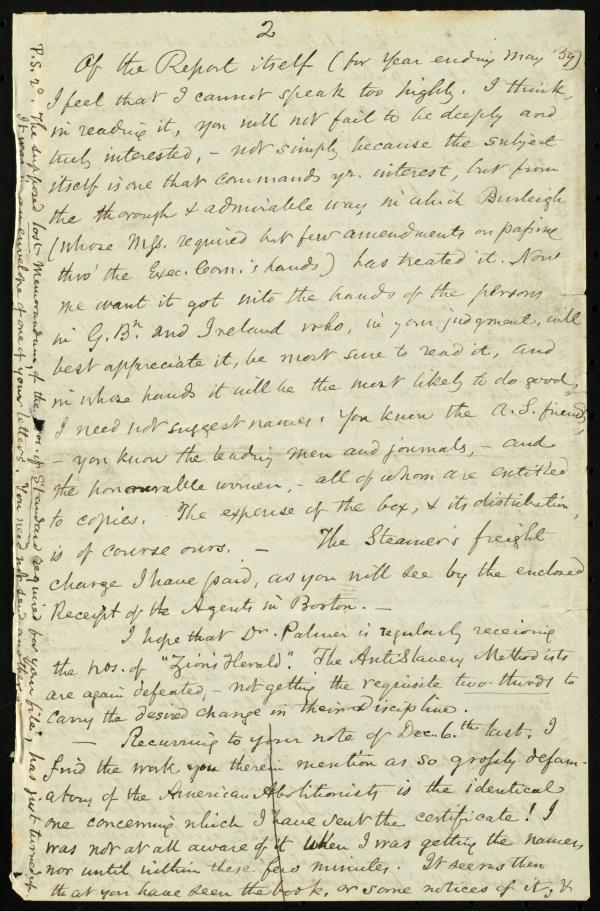 2
Of the Report itself (for Year ending May '59)
I feel that I cannot speak too highly. I think,
in reading it, you will not fail to be deeply and
truly interested, – not simply because the subject
itself is one that commands yr. interest, but from
the thorough & admirable way in which Burleigh
(whose Mss. required but few amendments on passing
thro' the Exec. Com.'s hands) has treated it. Now
we want it got into the hands of the persons –
in G. Bn. and Ireland who, in your judgment, will
best appreciate it, be most sure to read it, and
in whose hands it will be the most likely to do good,
I need not suggest names. You know the A.S. friends,
– you know the leading men and journals, – and
the honourable women, – all of whom are entitled
to copies. The expense of the box, & its distribution,
is of course ours. – The Steamer's freight
charge I have paid, as you will see by the enclosed
Receipt of the Agents in Boston. –
I hope that Dr. Palmer is regularly receiving
the nos. of "Zion's Herald". The AntiSlavery Methodists
are again defeated, – not getting the requisite two-thirds to
carry the desired change in their Discipline.
– Recurring to your note of Dec. 6.th last, I
find the work you therein mention as so grossly defam-
atory of the American Abolitionists is the identical
one concerning which I have sent the certificate! I
was not at all aware of it when I was getting the names
nor until within these few minutes. It seems then
that you have seen the book, or some notices of it, &
P.S. 2d. The supposed lost Memorandum, of the nos. of Standard required for your file, has just turned up.
It was in an envelope of one of your letters. You need not send another.